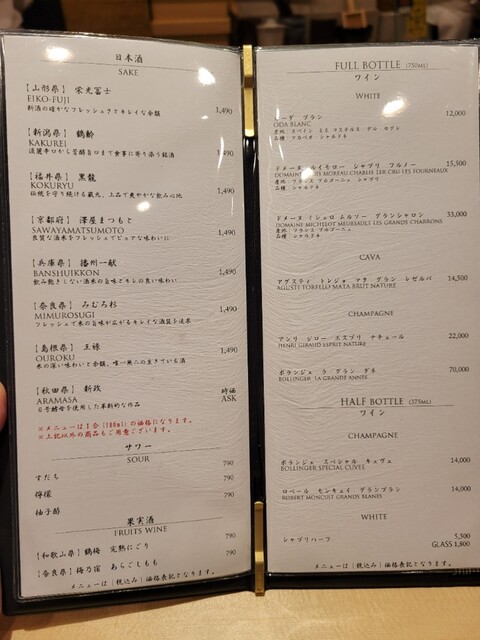 日本酒
SAKE
【山形県】 栄光冨士
EIKO-FUJI
新酒の確かなフレッシュさとキレイな余韻
1,490
【新潟県】 鶴齢
KAKUREI
淡麗辛口から芳醇旨口まで食事に寄り添う銘酒
1,490
【福井県】 黒龍
KOKURYU
伝統を守り続ける蔵元、上品で爽やかな飲み心地
1,490
【京都府】 澤屋まつもと
SAWAYAMATSUMOTO
良質な酒米をフレッシュでピュアな味わいに
1,490
【兵庫県】 播州一献
BANSHUIKKON
飲み飽きしない酒米の旨味とキレの良い味わい
1,490
【奈良県】 みむろ杉
MIMUROSUGI
フレッシュで米の旨味が広がるキレイな酒質を追求
1,490
【島根県】 王祿
OUROKU
米の深い味わいと余韻、唯一無二の生きている酒
1,490
【秋田県】 新政
ARAMASA
時価
ASK
6号酵母を使用した革新的な作品
※メニューは1合(180ml)の価格になります。
※上記以外の商品もご用意ございます。
サワー
SOUR
すだち
790
檸檬
790
柚子酢
790
果実酒
FRUITS WINE
【和歌山県】鶴梅 完熟にごり
790
【奈良県】梅乃宿 あらごしもも
790
メニューは［税込み］価格表記となります。
FULL BOTTLE (750ML)
ワイン
WHITE
ーダ ブラン
12,000
ODA BLANC
品種：マカベオ シャルドネ
ドメーヌ ルイモロー シャブリ フルノー
15,500
DOMAINE LOUIS MOREAU CHABLIS 1ER CRU LES FOURNEAUX
産地：フランス ブルゴーニュ シャブリ
品種：シャルドネ
ドメーヌ ミシュロ ムルソー グランシャロン
33,000
DOMAINE MICHELOT MEURSAULT LES GRANDS CHARRONS
産地：フランス ブルゴーニュ
品種：シャルドネ
CAVA
アグスティ トレジョ マタ グラン レゼルバ
14,500
AGUSTI TORELLO MATA BRUT NATURE
CHAMPAGNE
アンリ ジロー エスプリ ナチュール
22,000
HENRI GIRAUD ESPRIT NATURE
ボランジェ ラ グラン ダネ
70,000
BOLLINGER LA GRANDE ANNEE
HALF BOTTLE (375ML)
ワイン
CHAMPAGNE
ボランジェ スペシャル キュヴェ
14,000
BOLLINGER SPECIAL CUVEE
ロベール モンキュイ グランブラン
14,000
ROBERT MONCUIT GRANDS BLANES
WHITE
シャブリハーフ
5,500
GLASS 1,800
メニューは［税込み］価格表記となります。